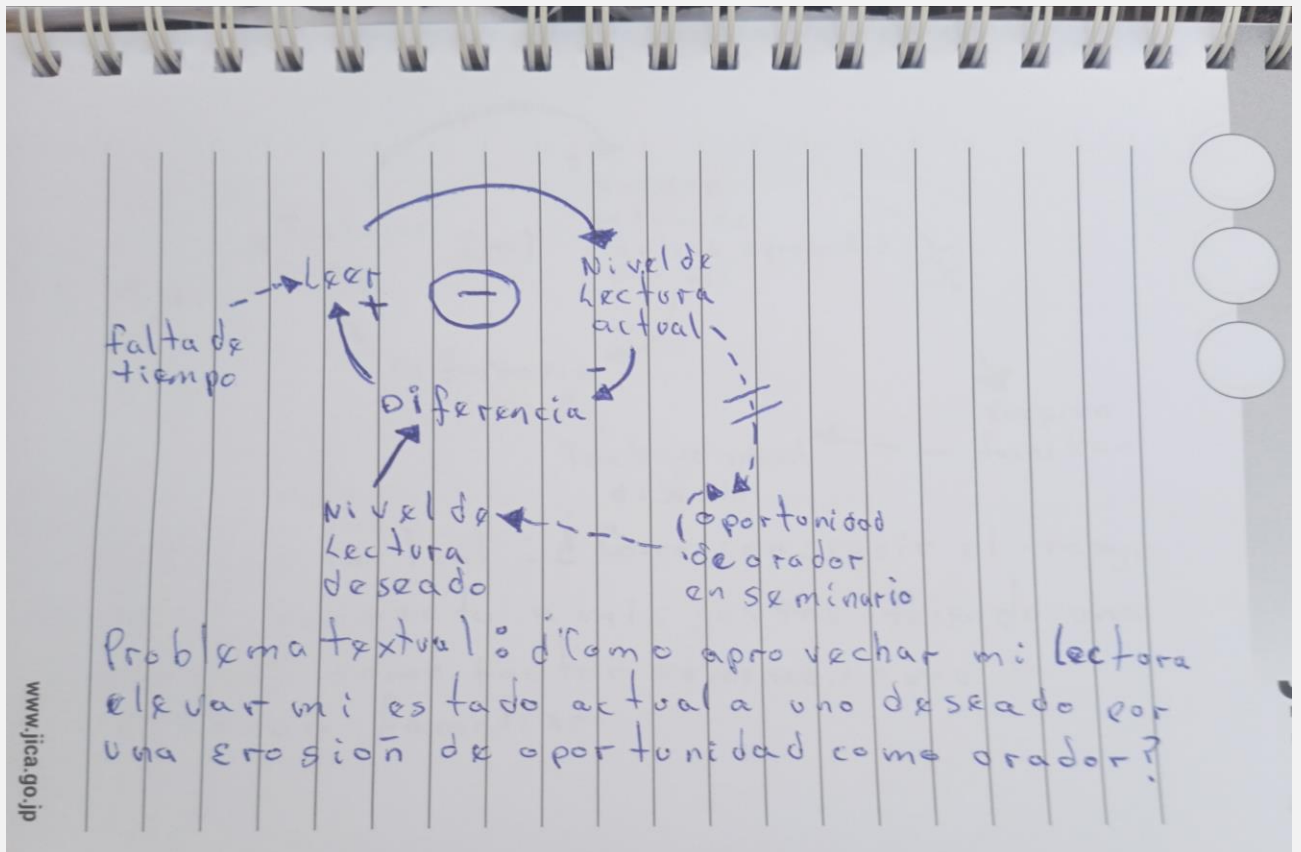 Leer
+
−
Nivel de
Lectura
actual
falta de
tiempo
-
Diferencia
Nivel de
Lectura
deseado
oportunidad
de orador
en seminario
Problema textual: ¿Como aprovechar mi lectura
elevar mi estado actual a uno deseado por
una erosión de oportunidad como orador?
www.jica.go.jp